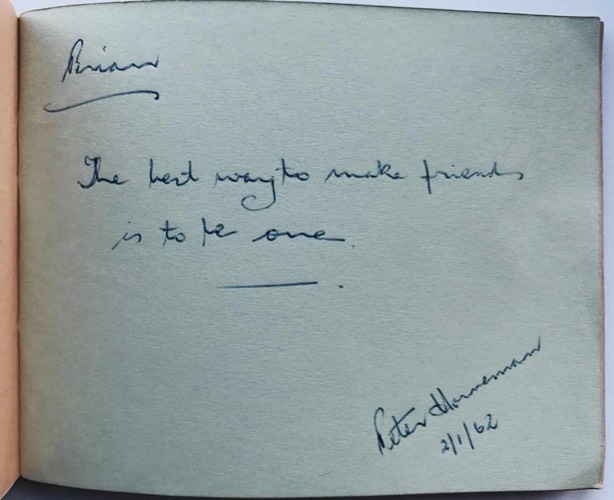 Brian
The best way to make friends
is to be one.
Peter
2/1/62